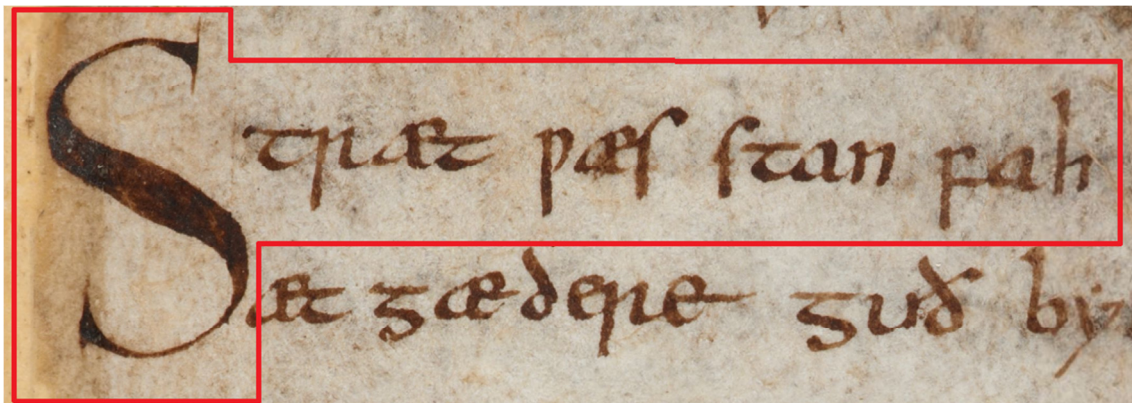 Stræt ƿæs stan fah
æt gædere guð by